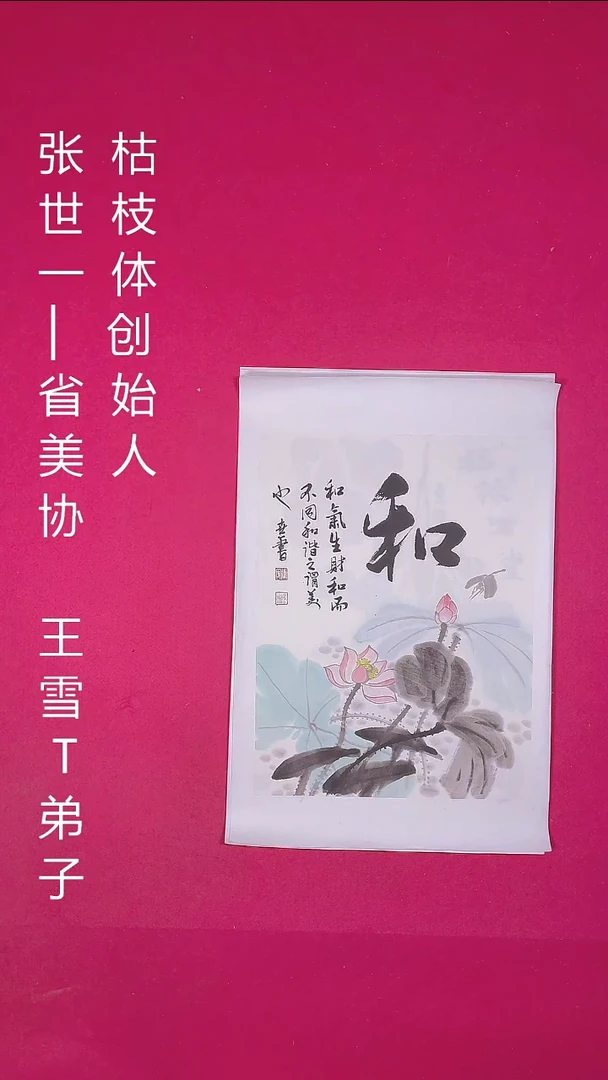 枯枝体创始人
张世一|省美协 王雪T弟子
和
和氣生財和而
不同和谐之谓美
也 世一書